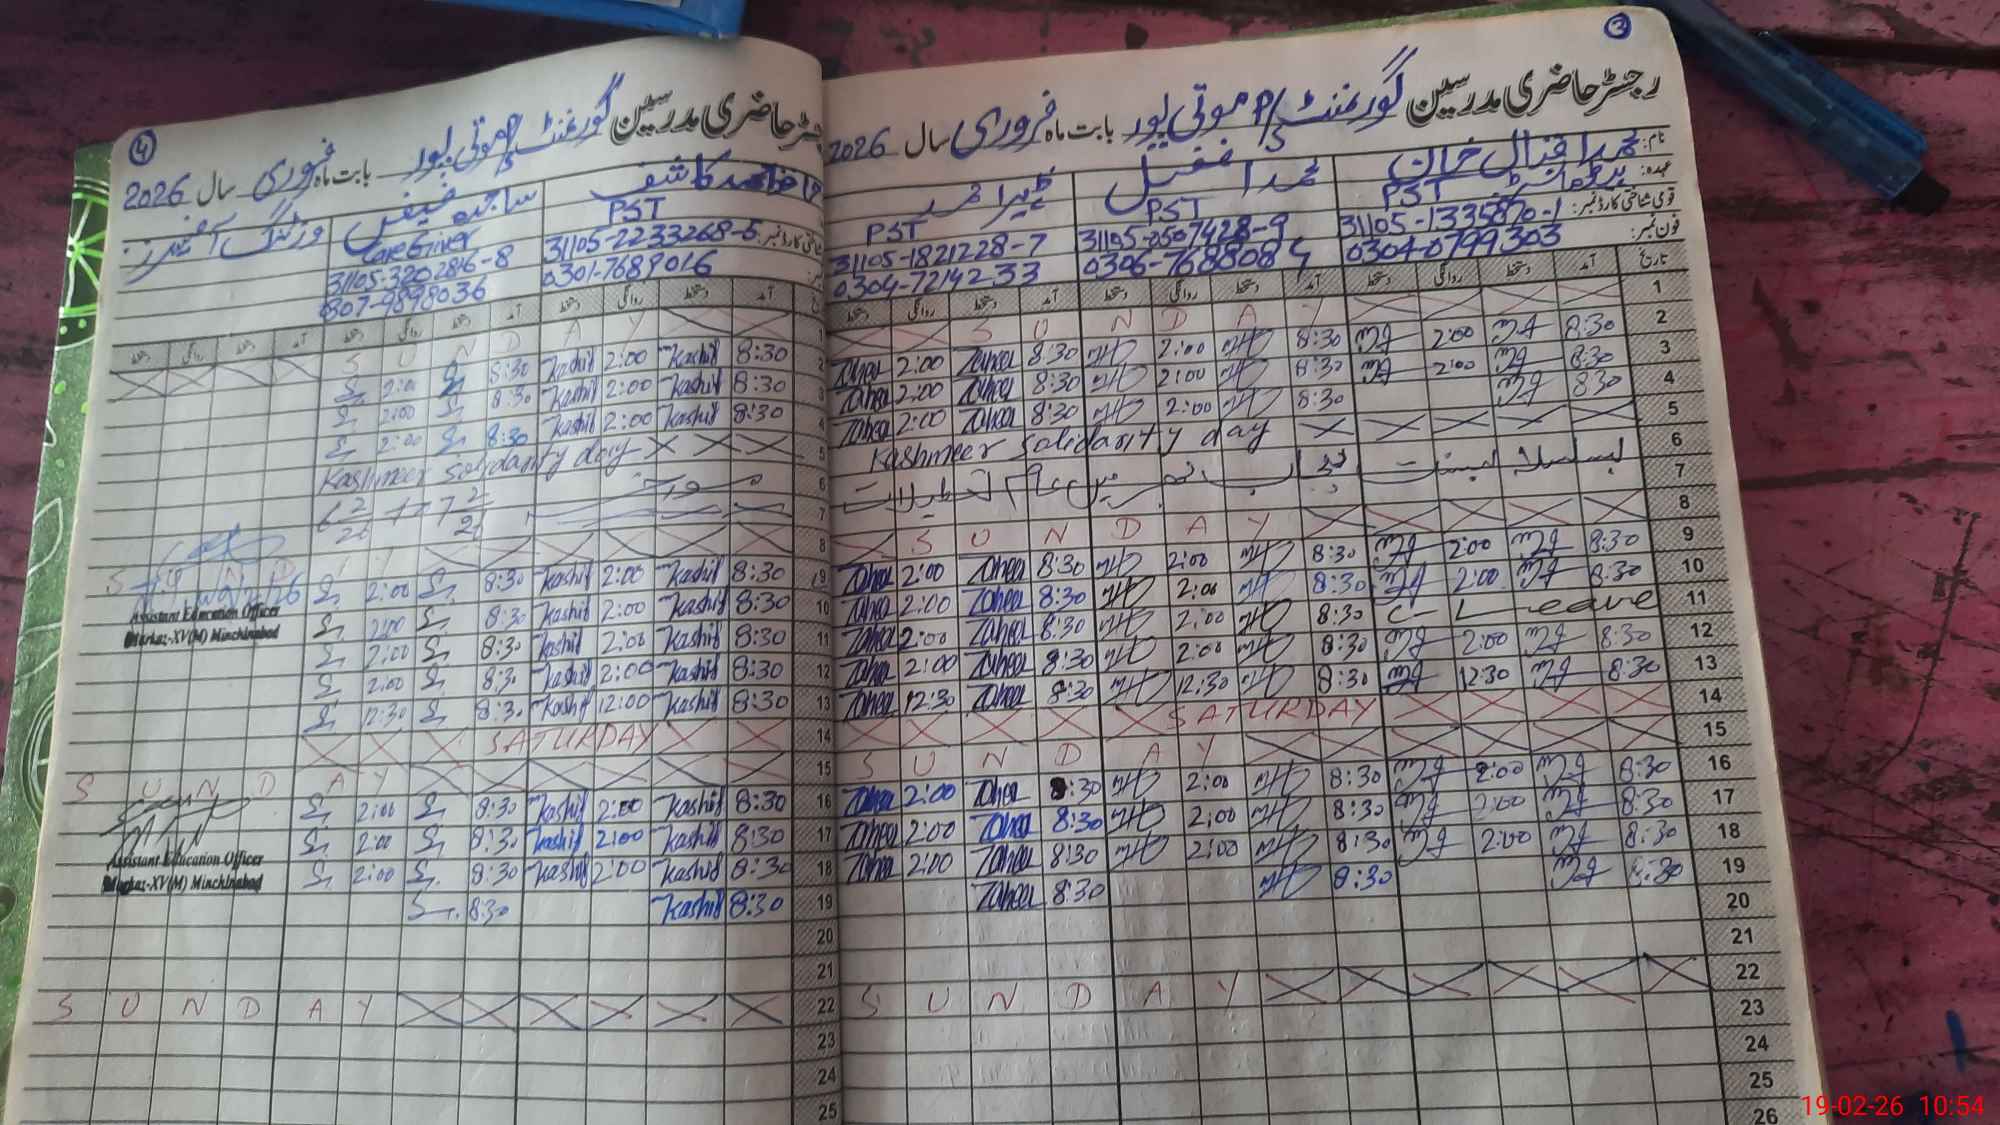 3
رجسٹر حاضری مدرسین گورنمنٹ P/S موتی پور بابت ماہ فروری سال 2026
نام: محمد اقبال خان محمد افضیل
عہدہ: PST PST PST
قومی شناختی کارڈ نمبر: 31105-1335870-1 31105-0507428-9 31105-1821228-7
فون نمبر: 0304-0799303 0306-7688084 0304-7214233
تاریخ آمد دستخط روانگی دستخط آمد دستخط روانگی دستخط آمد دستخط روانگی دستخط
1 S U N D A Y
2 8:30 2:00 8:30 2:00 8:30 Zaheer 2:00 Zaheer
3 8:30 2:00 8:30 2:00 8:30 Zaheer 2:00 Zaheer
4 8:30 8:30 2:00 8:30 Zaheer 2:00 Zaheer
5 Kashmeer solidarity day
6 بسلسلہ بسنت پنجاب بھر میں عام تعطیلات
7
8 S U N D A Y
9 8:30 2:00 8:30 2:00 8:30 Zaheer 2:00 Zaheer
10 8:30 2:00 8:30 2:00 8:30 Zaheer 2:00 Zaheer
11 C Leave 8:30 2:00 8:30 Zaheer 2:00 Zaheer
12 8:30 2:00 8:30 2:00 8:30 Zaheer 2:00 Zaheer
13 8:30 12:30 8:30 12:30 8:30 Zaheer 12:30 Zaheer
14 SATURDAY
15 S U N D A Y
16 8:30 2:00 8:30 2:00 8:30 Zaheer 2:00 Zaheer
17 8:30 2:00 8:30 2:00 8:30 Zaheer 2:00 Zaheer
18 8:30 2:00 8:30 2:00 8:30 Zaheer 2:00 Zaheer
19 8:30 8:30 8:30 Zaheer
20
21
22 S U N D A Y
23
24
25
26
4
رجسٹر حاضری مدرسین گورنمنٹ P/S موتی پور بابت ماہ فروری سال 2026
کاشف ساجدہ حفیض وزٹنگ آفیسرز
PST Care Giver
شناختی کارڈ نمبر: 31105-2233268-5 31105-3202816-8
0301-7689016 0307-9898036
آمد دستخط روانگی دستخط آمد دستخط روانگی دستخط آمد دستخط روانگی دستخط
1 S U N D A Y
2 8:30 Kashif 2:00 Kashif 8:30 2:00
3 8:30 Kashif 2:00 Kashif 8:30 2:00
4 8:30 Kashif 2:00 Kashif 8:30 2:00
5 Kashmeer solidarity day
6
7
8 S U N D A Y
9 8:30 Kashif 2:00 Kashif 8:30 2:00
10 8:30 Kashif 2:00 Kashif 8:30 2:00
11 8:30 Kashif 2:00 Kashif 8:30 2:00
12 8:30 Kashif 2:00 Kashif 8:30 2:00
13 8:30 Kashif 12:00 Kashif 8:30 12:30
Assistant Education Officer
Markaz-XV(M) Minchinabad
14 SATURDAY
15 S U N D A Y
16 8:30 Kashif 2:00 Kashif 8:30 2:00
17 8:30 Kashif 2:00 Kashif 8:30 2:00
18 8:30 Kashif 2:00 Kashif 8:30 2:00
Assistant Education Officer
Markaz-XV(M) Minchinabad
19 8:30 Kashif 8:30
20
21
22 S U N D A Y
23
24
25
19-02-26 10:54